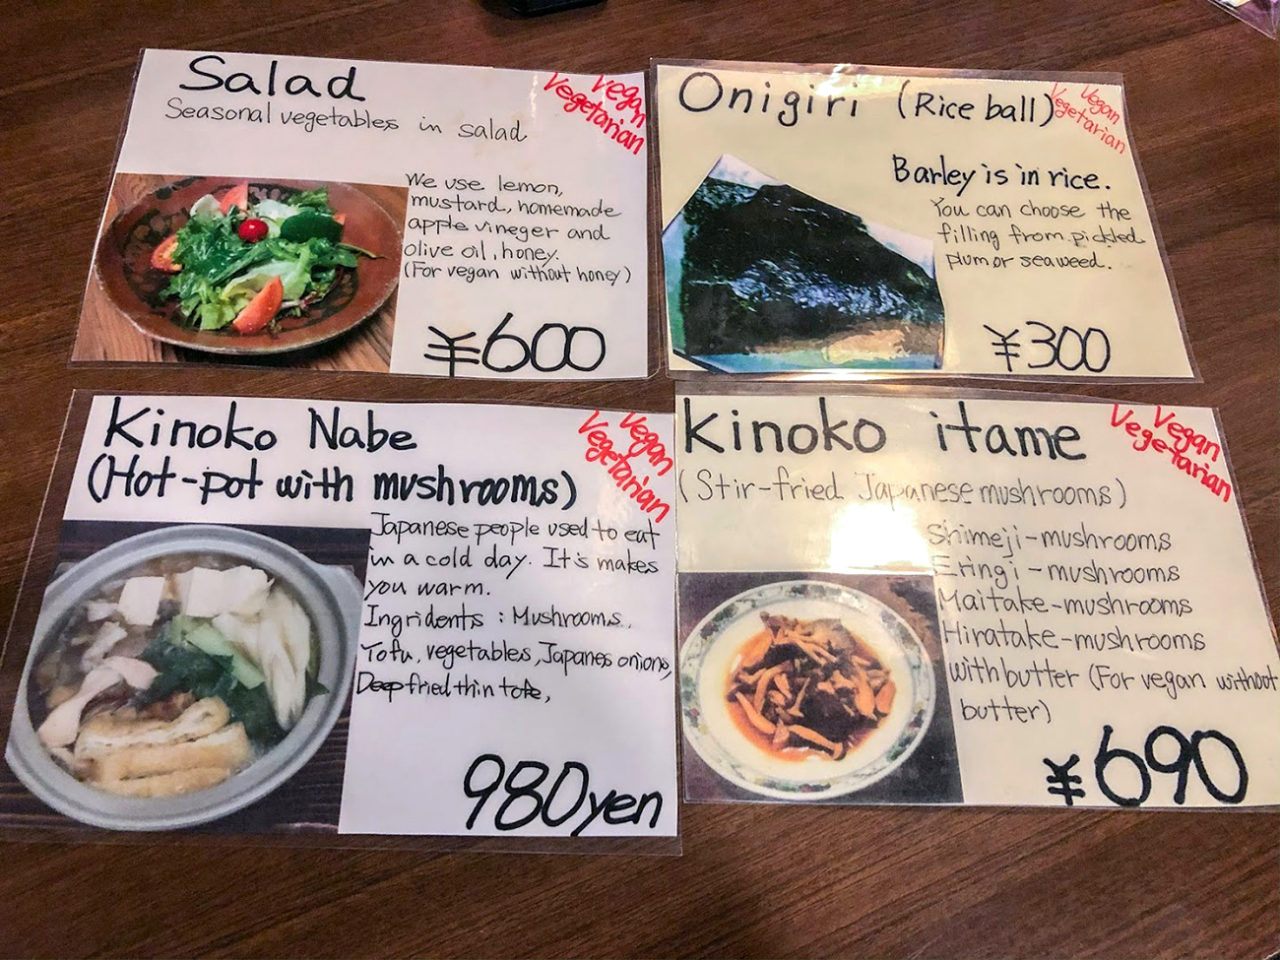 Salad
Vegan
Vegetarian
Seasonal vegetables in salad
We use lemon,
mustard, homemade
apple vineger and
olive oil, honey.
(For vegan without honey)
¥600
Onigiri (Rice ball)
Vegan
Vegetarian
Barley is in rice.
You can choose the
filling from pickled
plum or seaweed.
¥300
Kinoko Nabe
(Hot-pot with mushrooms)
Vegan
Vegetarian
Japanese people used to eat
in a cold day. It's makes
you warm.
Ingridents : Mushrooms,
Tofu, vegetables, Japanes onions,
Deep fried thin tofe,
980yen
Kinoko itame
Vegan
Vegetarian
(Stir-fried Japanese mushrooms)
Shimeji-mushrooms
Eringi-mushrooms
Maitake-mushrooms
Hiratake-mushrooms
with butter (For vegan without
butter)
¥690